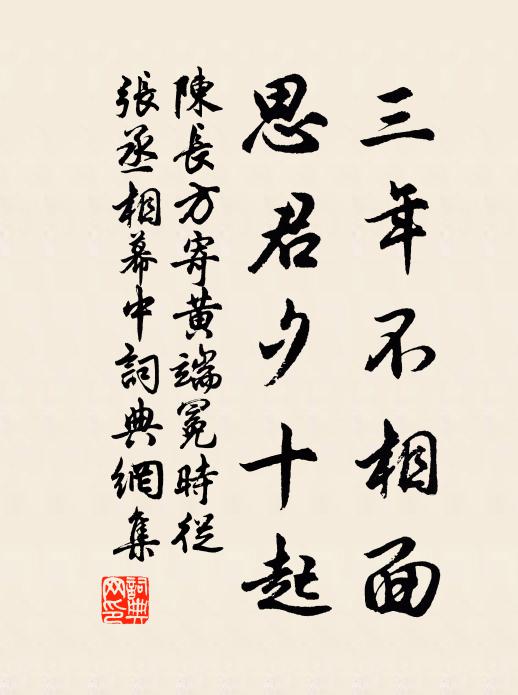 三年不相面
思君夕十起
陳長方寄黃端冕時從
張丞相幕中詞典網集
詞典
网印